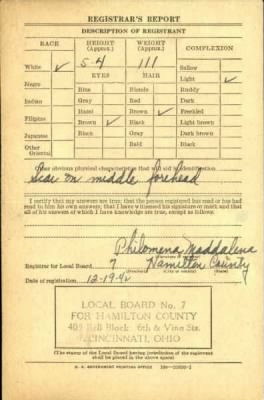 REGISTRAR'S REPORT
DESCRIPTION OF REGISTRANT
RACE HEIGHT (Approx.) WEIGHT (Approx.) COMPLEXION
White ✓ 5-4 111 Sallow
EYES HAIR Light ✓
Negro Blue Blonde Ruddy
Indian Gray Red Dark
Hazel Brown ✓ Freckled
Filipino Brown ✓ Black Light brown
Japanese Black Gray Dark brown
Other Bald Black
Oriental
Other obvious physical characteristics that will aid in identification
Scar on middle forehead
I certify that my answers are true; that the person registered has read or has
had read to him his own answers; that I have witnessed his signature or mark and that
all of his answers of which I have knowledge are true, except as follows:
Philomena Maddalena
Registrar for Local Board 7 Hamilton County
Date of registration 12-19-42
LOCAL BOARD No. 7
FOR HAMILTON COUNTY
409 Bell Block 6th & Vine Sts.
CINCINNATI, OHIO
(The stamp of the Local Board having jurisdiction of the registrant
shall be placed in the above space.)
U. S. GOVERNMENT PRINTING OFFICE